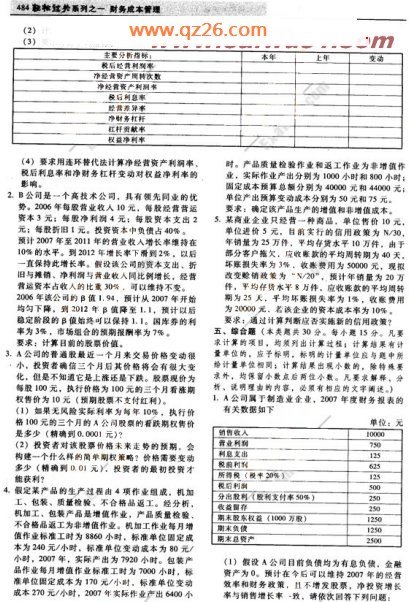 484 轻松过关系列之一 财务成本管理
www.qz26.com
(2)
(3)
主要分析指标: 本年 上年 变动
税后经营利润率
净经营资产周转次数
净经营资产利润率
税后利息率
经营差异率
净财务杠杆
杠杆贡献率
权益净利率
(4) 要求用连环替代法计算净经营资产利润率、
税后利息率和净财务杠杆变动对权益净利率的
影响。
2. B公司是一个高技术公司,具有领先同业的优
势。2006年每股营业收入10元,每股经营营运
资本3元;每股净利润4元;每股资本支出2
元;每股折旧1元。投资资本中负债占40%。
预计2007年至2011年的营业收入增长率维持在
10%的水平。到2012年增长率下滑到2%,以后
一直保持此增长率。假设该公司的资本支出、折
旧与摊销、净利润与营业收入同比例增长,经营
营运资本占收入的比重30%,可以维持不变。
2006年该公司的β值1.94,预计从2007年开始
均匀下降,到2012年β值降至1.1,预计以后
稳定阶段的β值始终可以保持1.1。国库券的利
率为3%,市场组合的预期报酬率为7%。
要求:计算目前的股票价值。
3. A公司的普通股最近一个月来交易价格变动很
小,投资者确信三个月后其价格将会有很大变
化,但是不知道它是上涨还是下跌。股票现价为
每股100元,执行价格为100元的三个月看涨期
权售价为10元(预期股票不支付红利)。
(1) 如果无风险实际利率为每年10%,执行价
格100元的三个月的A公司股票的看跌期权售价
是多少(精确到0.0001元)?
(2) 投资者对该股票价格未来走势的预期,会
构建一个什么样的简单期权策略?价格需要变动
多少(精确到0.01元),投资者的最初投资才
能获利?
4. 假定某产品的生产过程由4项作业组成,机加
工、包装、质量检验、不合格品返工。经分析,
机加工、包装产品是增值作业,产品质量检验、
不合格品返工为非增值作业。机加工作业每月增
值作业标准工时为8860小时,标准单位固定成
本为240元/小时,标准单位变动成本为80元/
小时,2007年,实际产出为7920小时。包装产
品作业每月增值作业标准工时为7000小时,标
准单位固定成本为170元/小时,标准单位变动
成本270元/小时,2007年实际作业产出6400小
时。产品质量检验作业和返工作业为非增值作
业,实际作业产出分别为1000小时和800小时;
固定成本预算总额分别为40000元和44000元;
单位产出预算变动成本分别为50元和75元。
要求:确定该产品生产的增值和非增值成本。
5. 某商业企业只经营一种商品,单位售价10元,
单位进价5元,目前实行的信用政策为N/30,
年销量为25万件,平均存货水平10万件,由于
部分客户拖欠,应收账款的平均周转期为40天,
坏账损失率为3%,收账费用为50000元,现拟
改变赊销政策“N/20”,预计年销量为20万
件,平均存货水平8万件,应收账款的平均周转
期为25天,平均坏账损失率为1%,收账费用
为20000元,若该企业的资本成本率为10%。
要求:通过计算判断应否实施新的信用政策?
五、综合题(本类题共30分。每小题15分。凡要
求计算的项目,均须列出计算过程;计算结果有计
量单位的,应予标明,标明的计量单位应与题中所
给计量单位相同;计算结果出现小数的,除特殊要
求外,均保留小数点后两位小数。凡要求解释、分
析、说明理由的内容,必须有相应的文字阐述。)
1. A公司属于制造业企业,2007年度财务报表的
有关数据如下
单位:元
销售收入 10000
营业利润 750
利息支出 125
税前利润 625
所得税(税率20%) 125
税后利润 500
分出股利(股利支付率50%) 250
收益留存 250
期末股东权益(1000万股) 1250
期末负债 1250
期末总资产 2500
(1) 假设A公司目前负债均为有息负债,金融
资产为0。预计在今后可以维持2007年的经营
效率和财务政策,且不增发股票,净投资增长
率与销售增长率一致,请依次回答下列问题: